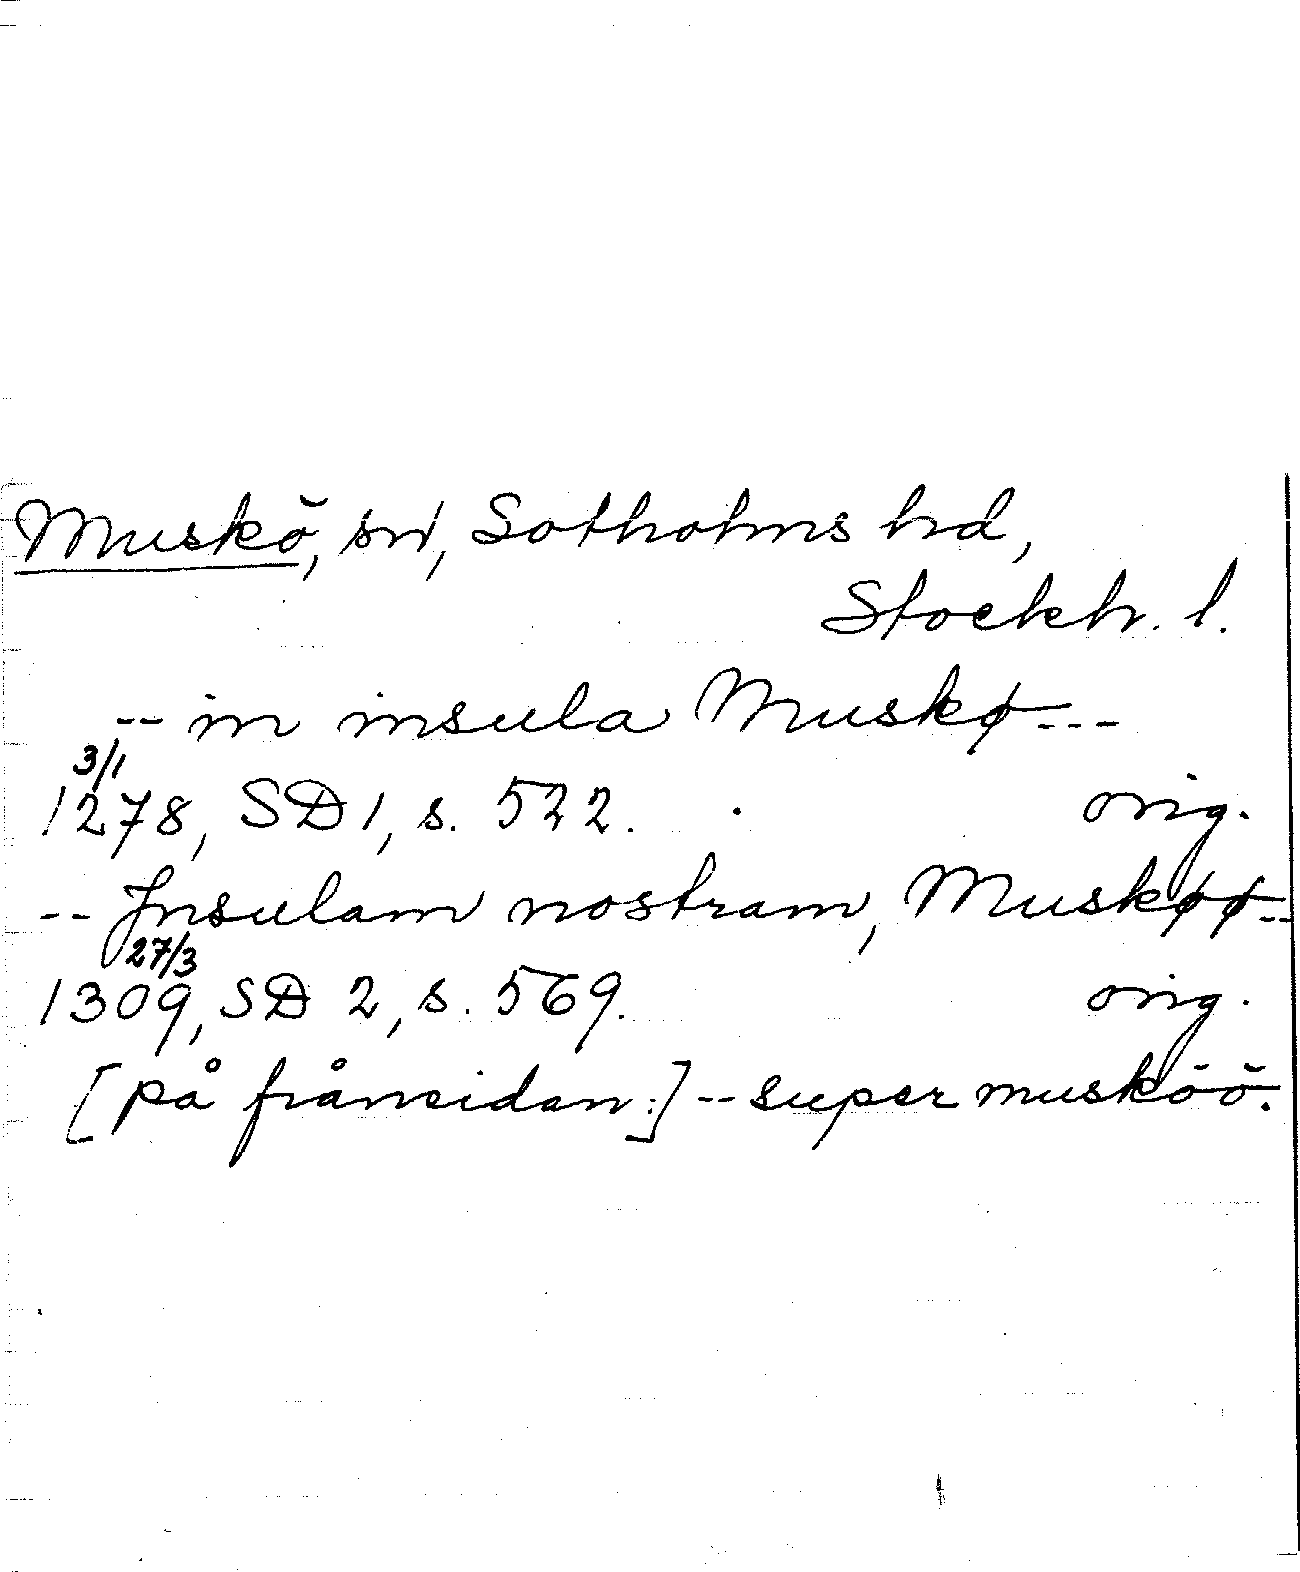 Muskö, sn, Sotholms hd,
Stockh. l.
-- in insula Muskø ---
3/1
1278, SD 1, s. 522. orig.
-- Insulam nostram, Muskøø --
27/3
1309, SD 2, s. 569. orig.
[på frånsidan:] -- super musköö.